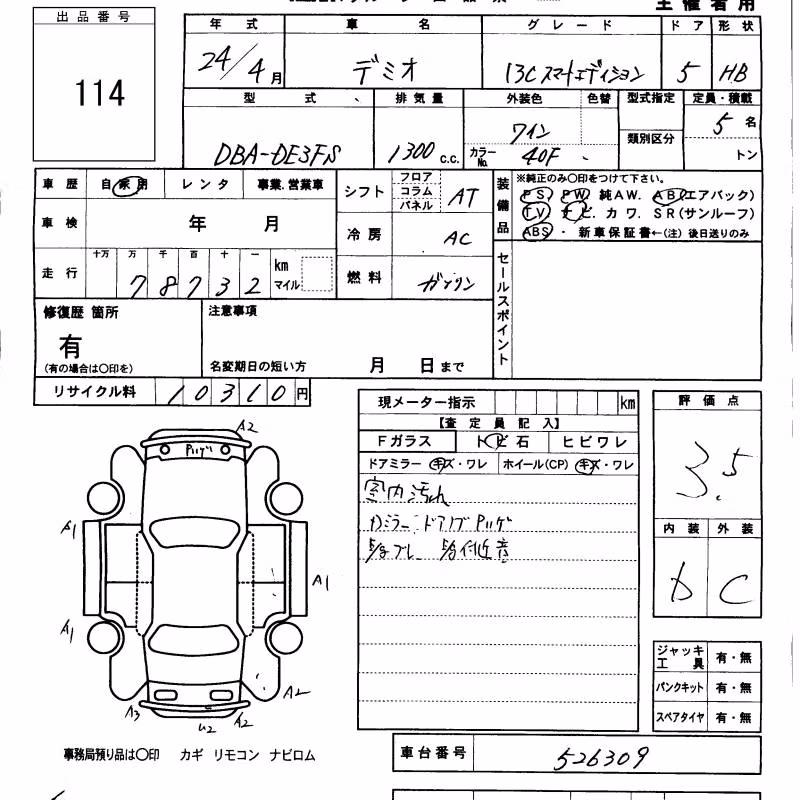 主催者用
出品番号
114
年式
24/4月
車名
デミオ
グレード
13Cスマートエディション
ドア
5
形状
HB
型式
DBA-DE3FS
排気量
1300c.c.
外装色
ワイン
色替
カラーNo.
40F
型式指定
類別区分
定員・積載
5名
トン
車歴 自家用 レンタ 事業.営業車
車検 年 月
走行 十万 万 千 百 十 一
78732
km
マイル
シフト フロア コラム パネル AT
冷房 AC
燃料 ガソリン
装備品
※純正のみ〇印をつけて下さい。
PS PW 純AW. AB(エアバック)
TV ナビ. カワ. SR(サンルーフ)
ABS ・ 新車保証書←(注) 後日送りのみ
セールスポイント
修復歴 箇所
有
(有の場合は〇印を)
注意事項
名変期日の短い方 月 日まで
リサイクル料 10310円
現メーター指示 km
【査定員記入】
Fガラス トビ石 ヒビワレ
ドアミラー キズ・ワレ ホイール(CP) キズ・ワレ
室内汚れ
評価点
3.5
内装 外装
D C
A2
A1
A1
A1
A2
A3
U2
A2
ジャッキ工具 有・無
パンクキット 有・無
スペアタイヤ 有・無
事務局預り品は〇印 カギ リモコン ナビロム
車台番号 526309